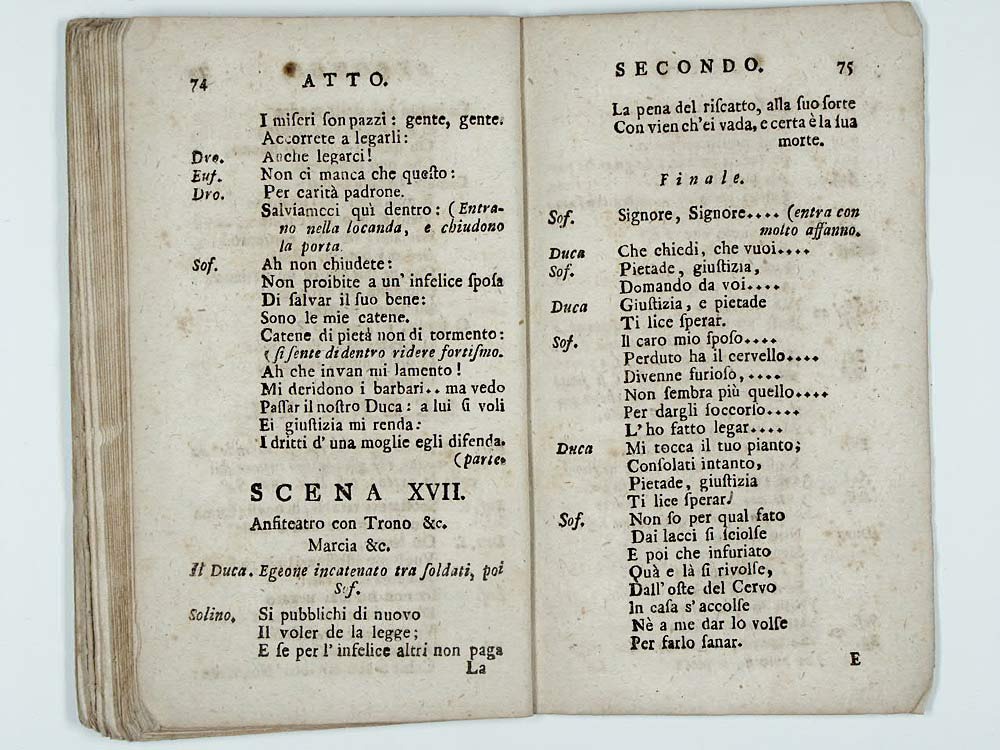 74 ATTO.
I miseri son pazzi : gente, gente.
Accorrete a legarli :
Dro. Anche legarci !
Euf. Non ci manca che queſto :
Dro. Per carità padrone.
Salviamcci quì dentro : (Entra-
no nella locanda, e chiudono
la porta.
Sof. Ah non chiudete :
Non proibite a un' infelice ſpoſa
Di ſalvar il ſuo bene :
Sono le mie catene.
Catene di pietà non di tormento :
(ſi ſente di dentro ridere fortiſmo.
Ah che invan mi lamento !
Mi deridono i barbari . . ma vedo
Paſſar il noſtro Duca : a lui ſi voli
Ei giuſtizia mi renda :
I dritti d' una moglie egli difenda.
(parte.
SCENA XVII.
Anfiteatro con Trono &c.
Marcia &c.
Il Duca. Egeone incatenato tra ſoldati, poi
Sof.
Solino. Si pubblichi di nuovo
Il voler de la legge ;
E ſe per l' infelice altri non paga
La
SECONDO. 75
La pena del riſcatto, alla ſuo ſorte
Con vien ch'ei vada, e certa è la ſua
morte.
Finale.
Sof. Signore, Signore.... (entra con
molto affanno.
Duca Che chiedi, che vuoi....
Sof. Pietade, giuſtizia,
Domando da voi....
Duca Giuſtizia, e pietade
Ti lice ſperar.
Sof. Il caro mio ſpoſo....
Perduto ha il cervello....
Divenne furioſo, ....
Non ſembra più quello....
Per dargli ſoccorſo....
L' ho fatto legar....
Duca Mi tocca il tuo pianto;
Conſolati intanto,
Pietade, giuſtizia
Ti lice ſperar.
Sof. Non ſo per qual fato
Dai lacci ſi ſciolſe
E poi che infuriato
Quà e là ſi rivolſe,
Dall' oſte del Cervo
In caſa s' accolſe
Nè a me dar lo volſe
Per farlo ſanar.
E